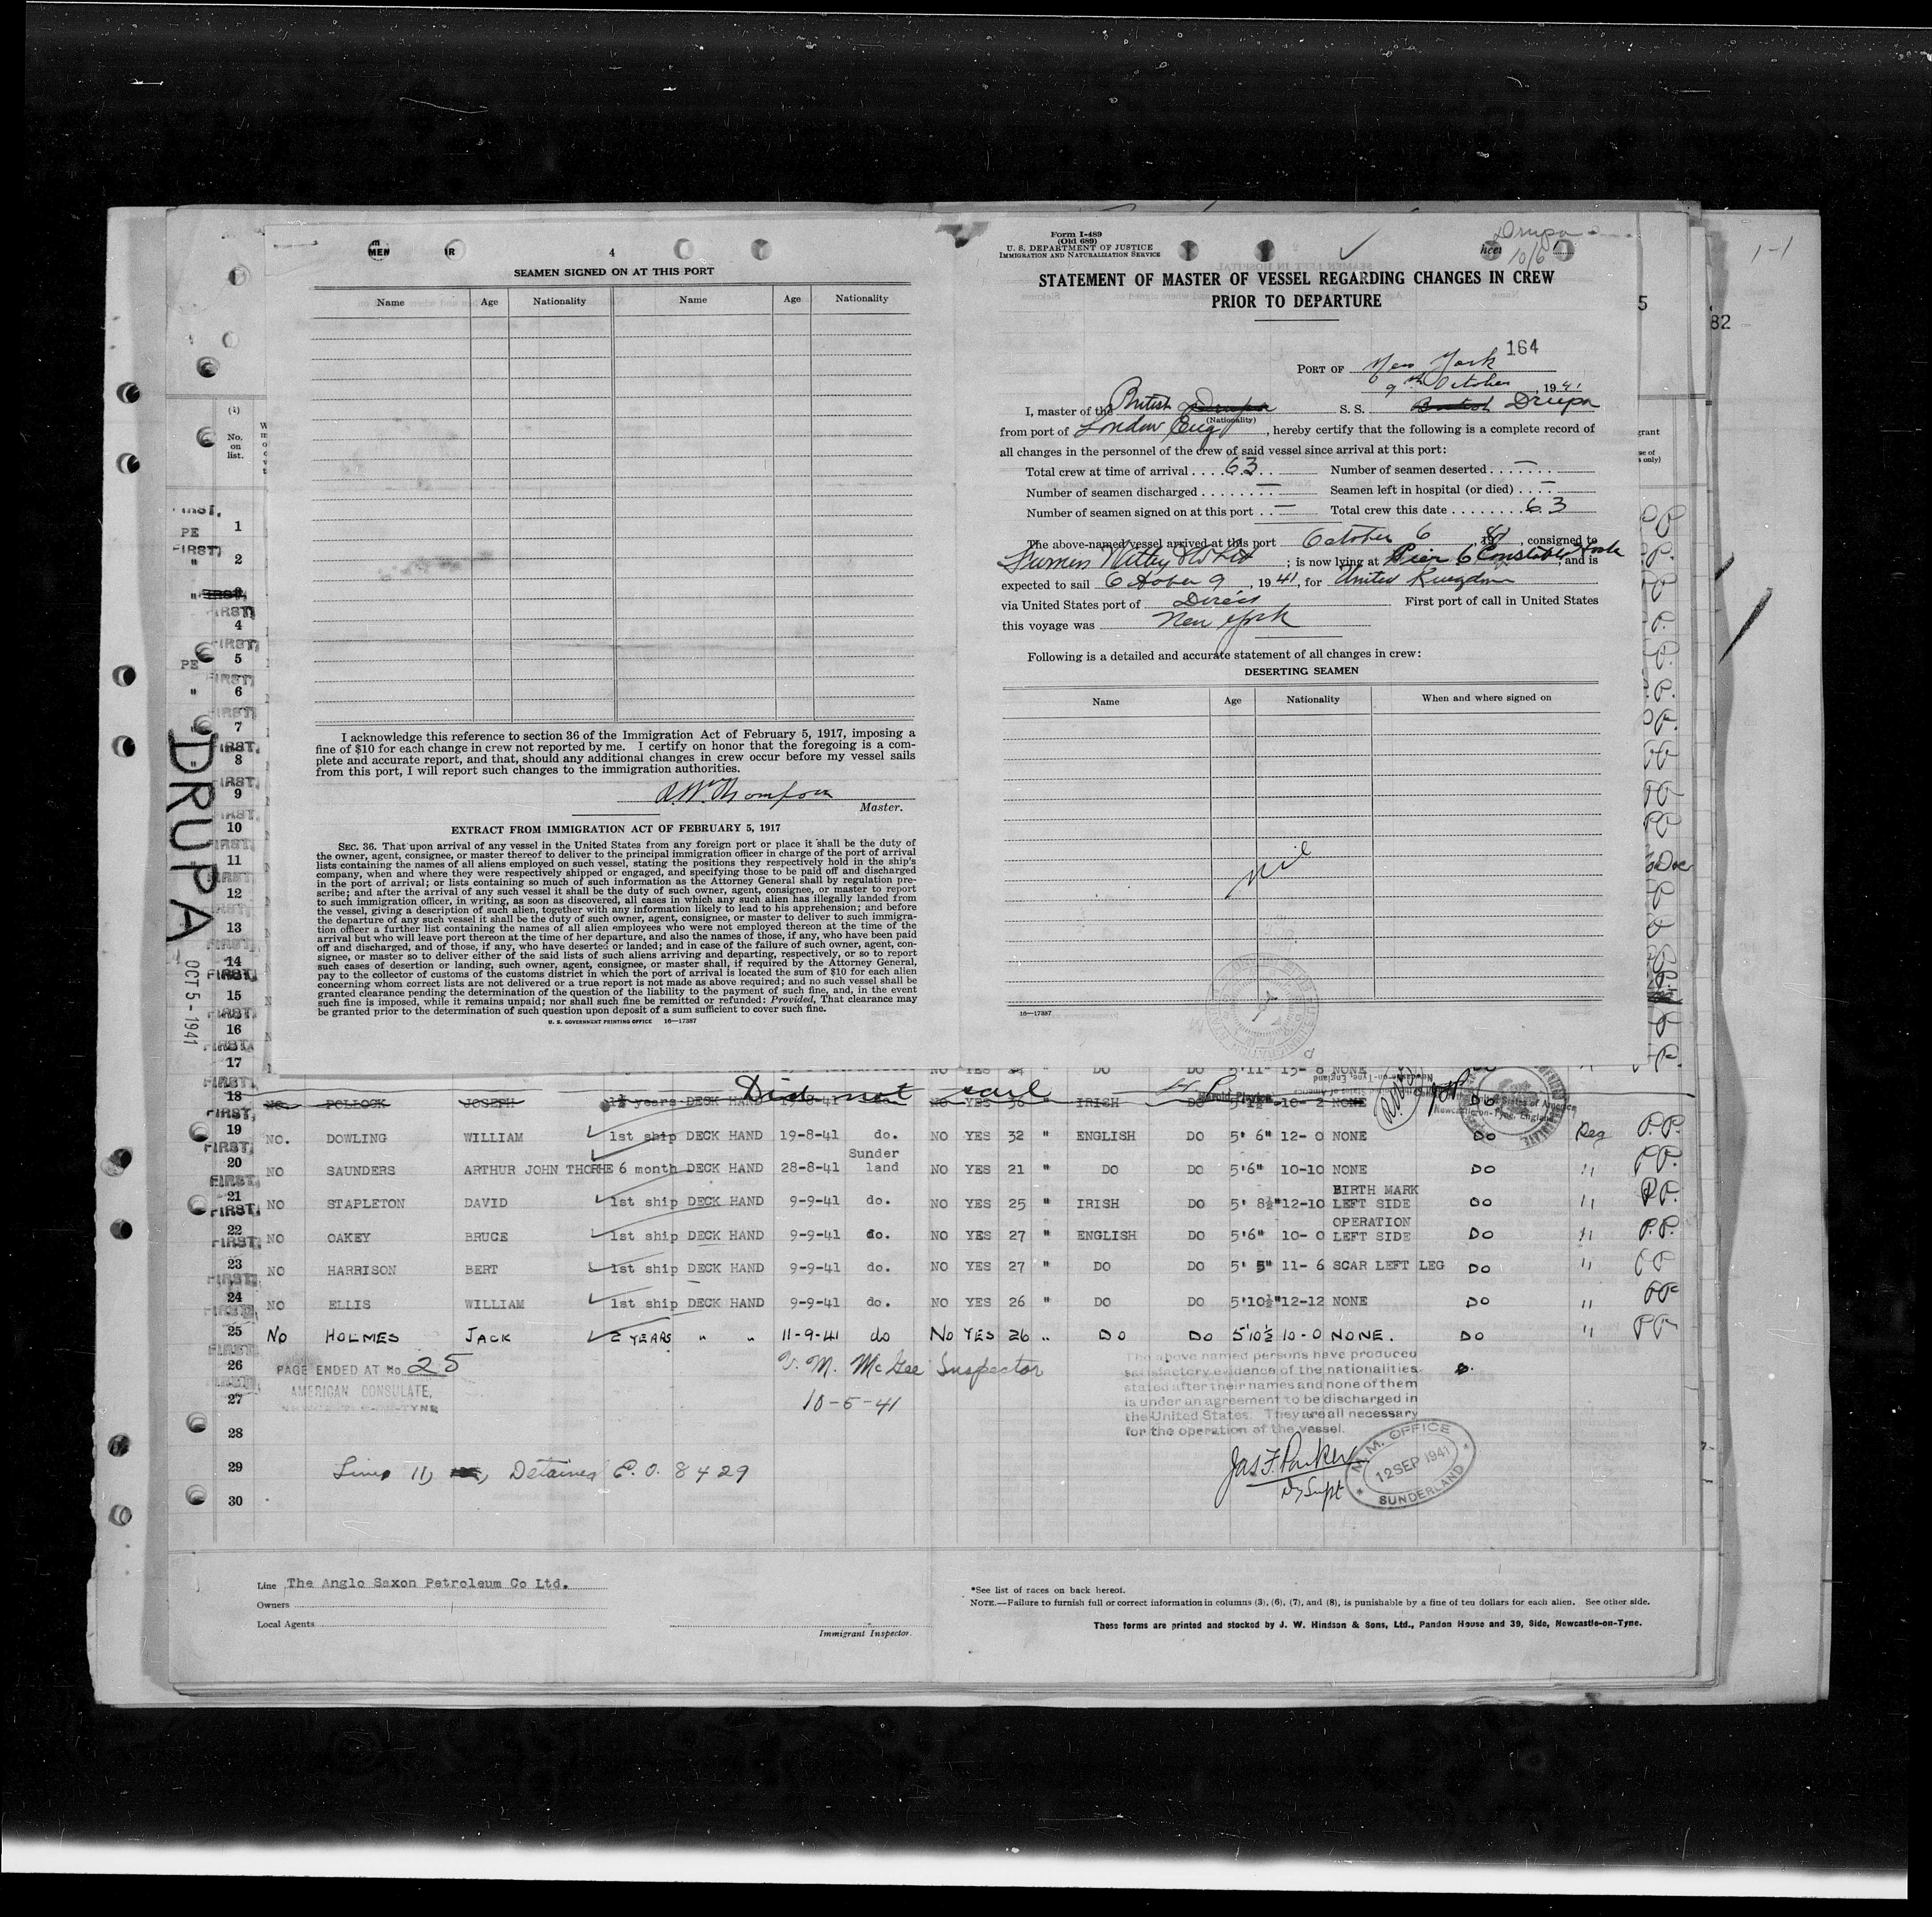 4
SEAMEN SIGNED ON AT THIS PORT
Name Age Nationality Name Age Nationality
I acknowledge this reference to section 36 of the Immigration Act of February 5, 1917, imposing a
fine of $10 for each change in crew not reported by me. I certify on honor that the foregoing is a com-
plete and accurate report, and that, should any additional changes in crew occur before my vessel sails
from this port, I will report such changes to the immigration authorities.
Master.
EXTRACT FROM IMMIGRATION ACT OF FEBRUARY 5, 1917
SEC. 36. That upon arrival of any vessel in the United States from any foreign port or place it shall be the duty of
the owner, agent, consignee, or master thereof to deliver to the principal immigration officer in charge of the port of arrival
lists containing the names of all aliens employed on such vessel, stating the positions they respectively hold in the ship's
company, when and where they were respectively shipped or engaged, and specifying those to be paid off and discharged
in the port of arrival; or lists containing so much of such information as the Attorney General shall by regulation pre-
scribe; and after the arrival of any such vessel it shall be the duty of such owner, agent, consignee, or master to report
to such immigration officer, in writing, as soon as discovered, all cases in which any such alien has illegally landed from
the vessel, giving a description of such alien, together with any information likely to lead to his apprehension; and before
the departure of any such vessel it shall be the duty of such owner, agent, consignee, or master to deliver to such immigra-
tion officer a further list containing the names of all alien employees who were not employed thereon at the time of the
arrival but who will leave port thereon at the time of her departure, and also the names of those, if any, who have been paid
off and discharged, and of those, if any, who have deserted or landed; and in case of the failure of such owner, agent, con-
signee, or master so to deliver either of the said lists of such aliens arriving and departing, respectively, or so to report
such cases of desertion or landing, such owner, agent, consignee, or master shall, if required by the Attorney General,
pay to the collector of customs of the customs district in which the port of arrival is located the sum of $10 for each alien
concerning whom correct lists are not delivered or a true report is not made as above required; and no such vessel shall be
granted clearance pending the determination of the question of the liability to the payment of such fine, and, in the event
such fine is imposed, while it remains unpaid; nor shall such fine be remitted or refunded: Provided, That clearance may
be granted prior to the determination of such question upon deposit of a sum sufficient to cover such fine.
U. S. GOVERNMENT PRINTING OFFICE 16—17387
Form I-489
(Old 689)
U. S. DEPARTMENT OF JUSTICE
IMMIGRATION AND NATURALIZATION SERVICE
Drupa
10/6
STATEMENT OF MASTER OF VESSEL REGARDING CHANGES IN CREW
PRIOR TO DEPARTURE
164
PORT OF New York
9th October, 1941
I, master of the British Drupa S. S. British Drupa
(Nationality)
from port of London Eng, hereby certify that the following is a complete record of
all changes in the personnel of the crew of said vessel since arrival at this port:
Total crew at time of arrival 63 Number of seamen deserted —
Number of seamen discharged — Seamen left in hospital (or died) —
Number of seamen signed on at this port — Total crew this date 63
The above-named vessel arrived at this port October 6, 41, consigned to
; is now lying at Pier 6 Constable Hook, and is
expected to sail October 9, 1941, for United Kingdom
via United States port of Direct First port of call in United States
this voyage was New York
Following is a detailed and accurate statement of all changes in crew:
DESERTING SEAMEN
Name Age Nationality When and where signed on
nil
16—17387
DRUPA
OCT 5 - 1941
(1)
No.
on
list.
82
Did not sail
18 NO. POLLOCK JOSEPH 1½ years DECK HAND 19-8-41 do. NO YES 36 " IRISH DO 5' 1½ 10- 2 NONE DO
19 NO. DOWLING WILLIAM 1st ship DECK HAND 19-8-41 do. NO YES 32 " ENGLISH DO 5' 6" 12- 0 NONE DO Reg P.P.
20 NO SAUNDERS ARTHUR JOHN THORHE 6 month DECK HAND 28-8-41 Sunder land NO YES 21 " DO DO 5'6" 10-10 NONE DO " P.P.
21 NO STAPLETON DAVID 1st ship DECK HAND 9-9-41 do. NO YES 25 " IRISH DO 5' 8½" 12-10 BIRTH MARK LEFT SIDE DO " P.P.
22 NO OAKEY BRUCE 1st ship DECK HAND 9-9-41 do. NO YES 27 " ENGLISH DO 5'6" 10- 0 OPERATION LEFT SIDE DO " P.P.
23 NO HARRISON BERT 1st ship DECK HAND 9-9-41 do. NO YES 27 " DO DO 5' 5" 11- 6 SCAR LEFT LEG DO " PP
24 NO ELLIS WILLIAM 1st ship DECK HAND 9-9-41 do. NO YES 26 " DO DO 5'10½" 12-12 NONE DO " PP
25 NO HOLMES JACK 2 YEARS " " 11-9-41 do NO YES 26 " DO DO 5'10½ 10-0 NONE. DO " PP
26 PAGE ENDED AT No 25
AMERICAN CONSULATE,
NEWCASTLE-ON-TYNE
V. M. McGee Inspector
10-5-41
The above named persons have produced
satisfactory evidence of the nationalities
stated after their names and none of them
is under an agreement to be discharged in
the United States. They are all necessary
for the operation of the vessel.
Jas F. Parker
Dy Supt
M.M. OFFICE
12 SEP 1941
SUNDERLAND
27
28
29 Lines 11, Detained P.O. 8429
30
Line The Anglo Saxon Petroleum Co Ltd.
Owners
Local Agents
Immigrant Inspector.
*See list of races on back hereof.
NOTE.—Failure to furnish full or correct information in columns (3), (6), (7), and (8), is punishable by a fine of ten dollars for each alien. See other side.
These forms are printed and stocked by J. W. Hindson & Sons, Ltd., Pandon House and 39, Side, Newcastle-on-Tyne.